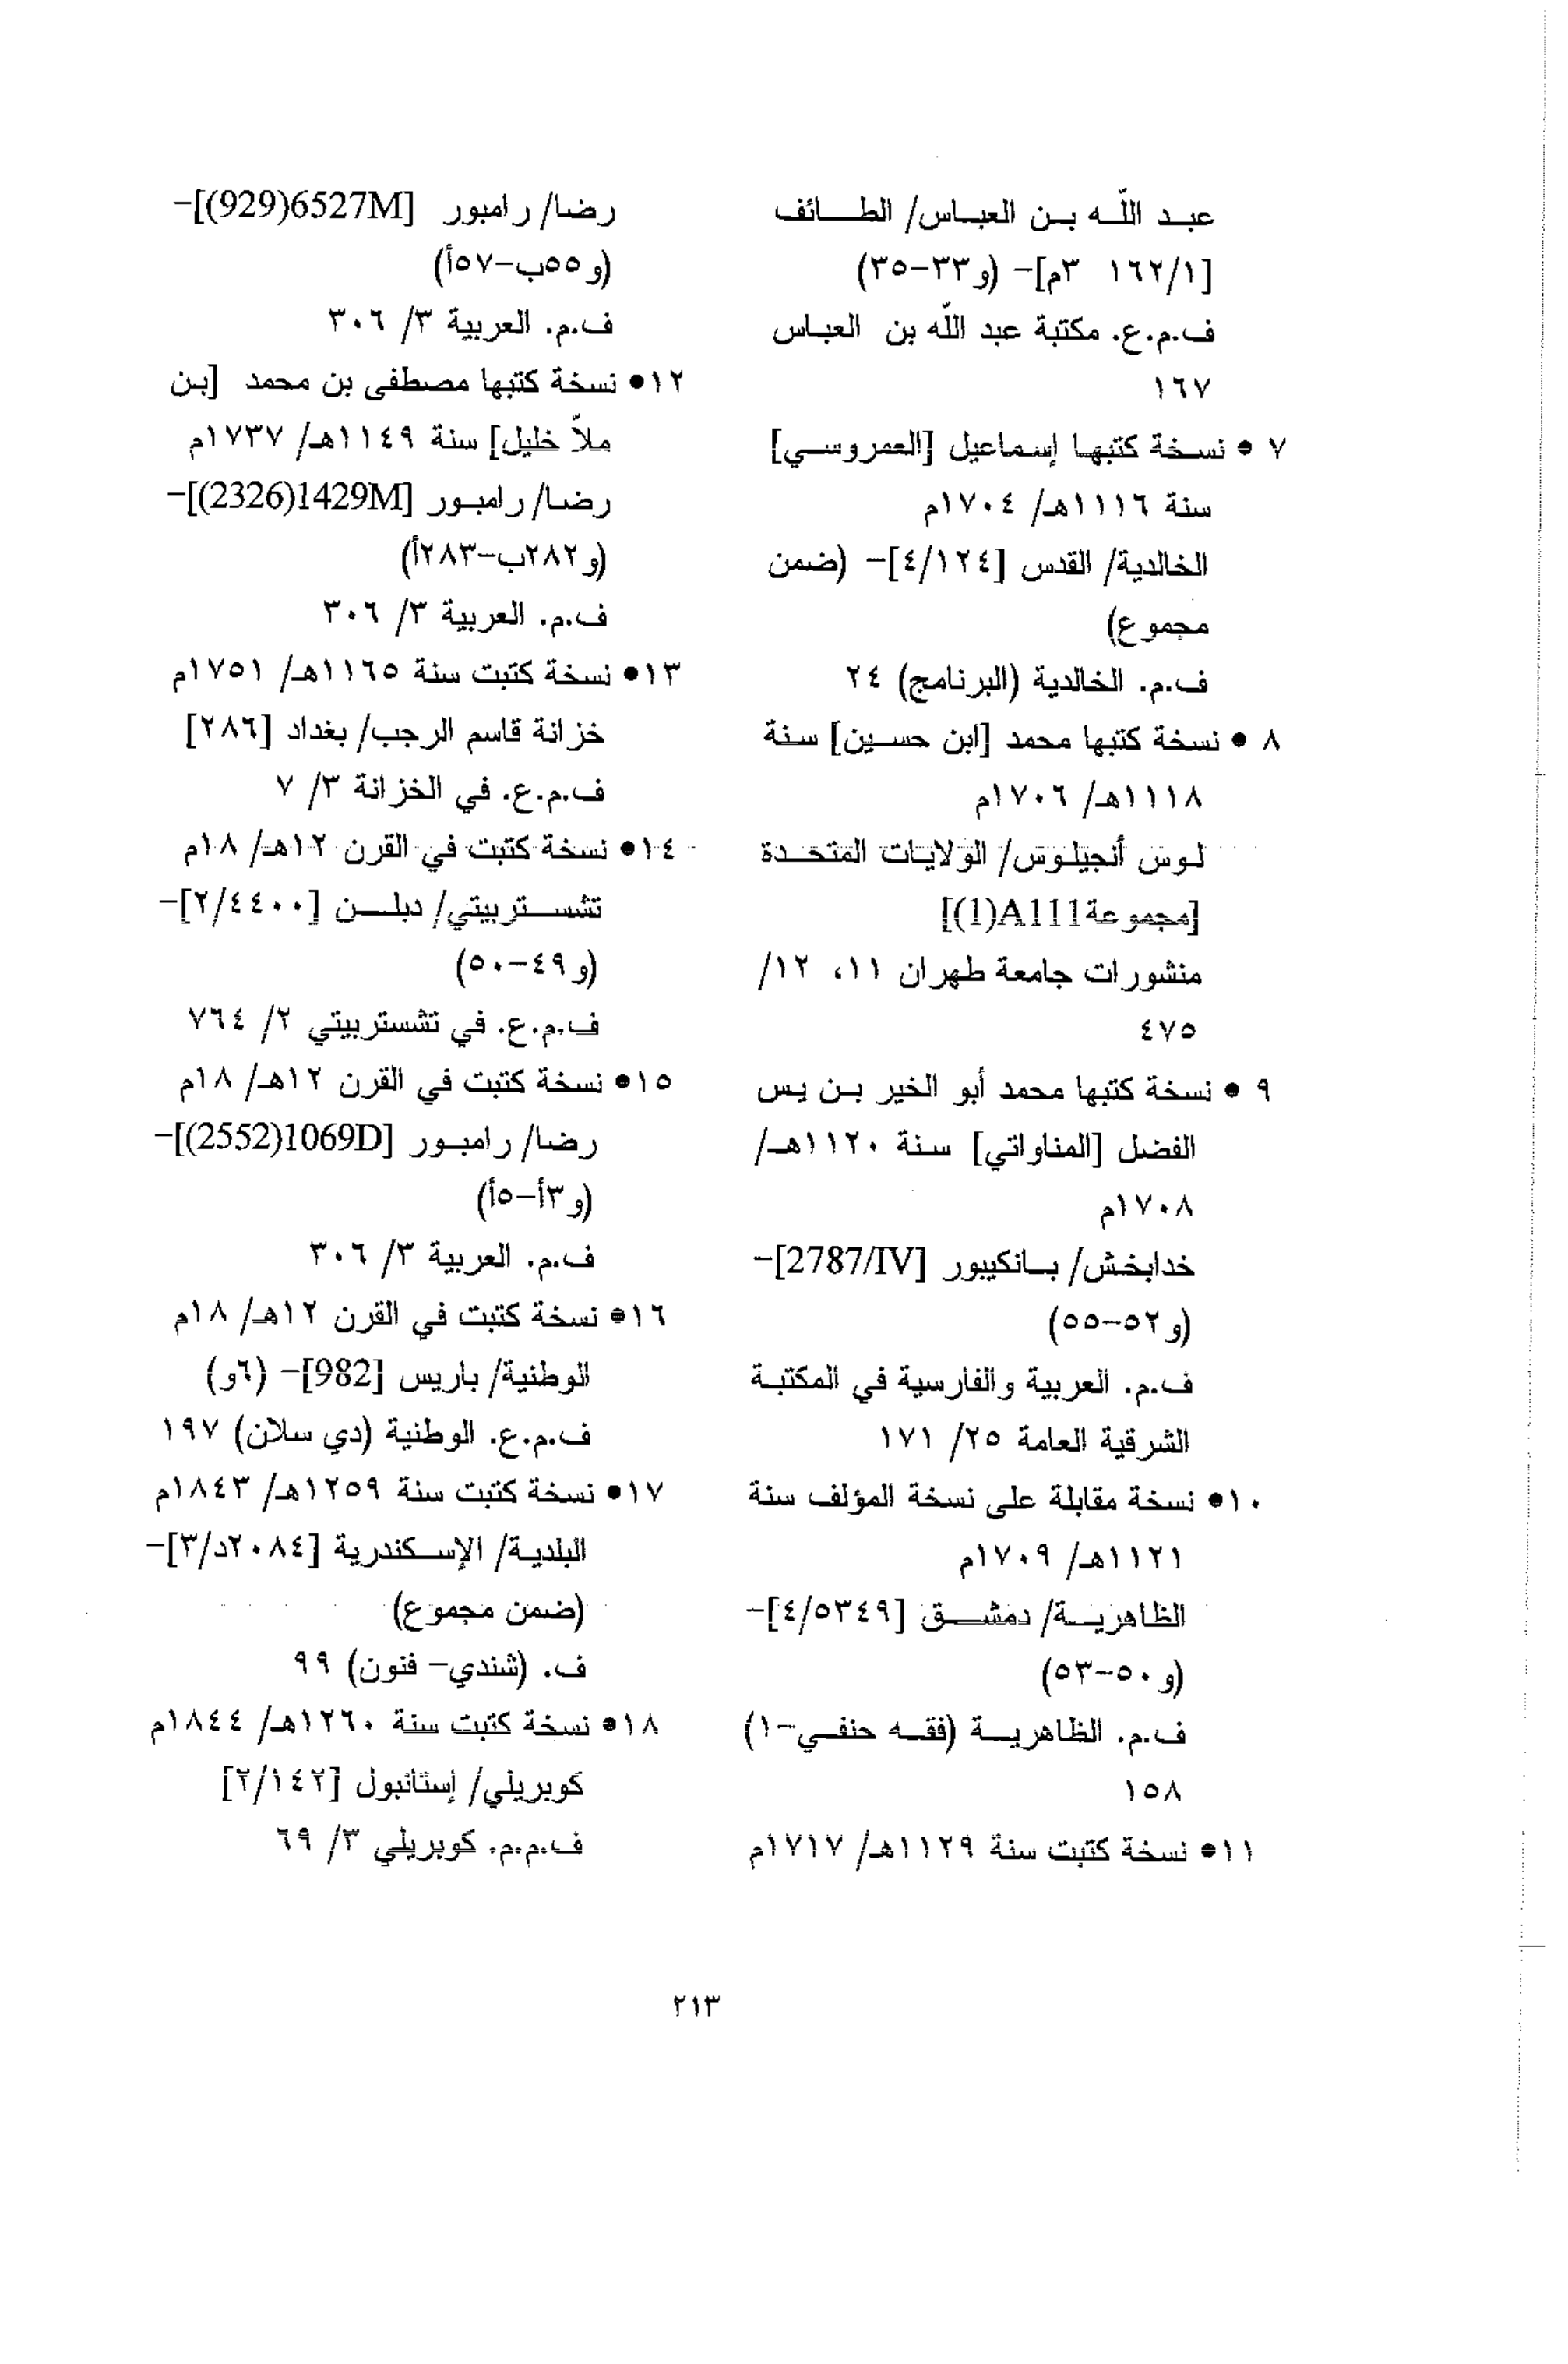 عبد اللّه بن العباس/ الطائف
[١٦٢/١ ٣م]- (و٣٣-٣٥)
ف.م.ع. مكتبة عبد اللّه بن العباس
١٦٧
٧ • نسخة كتبها إسماعيل [العمروسي]
سنة ١١١٦هـ/ ١٧٠٤م
الخالدية/ القدس [٤/١٢٤]- (ضمن
مجموع)
ف.م. الخالدية (البرنامج) ٢٤
٨ • نسخة كتبها محمد [ابن حسين] سنة
١١١٨هـ/ ١٧٠٦م
لوس أنجيلوس/ الولايات المتحدة
[مجموعة A111(1)]
منشورات جامعة طهران ١١، ١٢/
٤٧٥
٩ • نسخة كتبها محمد أبو الخير بن يس
الفضل [المناواتي] سنة ١١٢٠هـ/
١٧٠٨م
خدابخش/ بانكيبور [2787/IV]-
(و٥٢-٥٥)
ف.م. العربية والفارسية في المكتبة
الشرقية العامة ٢٥/ ١٧١
١٠• نسخة مقابلة على نسخة المؤلف سنة
١١٢١هـ/ ١٧٠٩م
الظاهرية/ دمشق [٤/٥٣٤٩]-
(و٥٠-٥٣)
ف.م. الظاهرية (فقه حنفي-١)
١٥٨
١١• نسخة كتبت سنة ١١٢٩هـ/ ١٧١٧م
رضا/ رامبور [6527M(929)]-
(و٥٥ب-٥٧أ)
ف.م. العربية ٣/ ٣٠٦
١٢• نسخة كتبها مصطفى بن محمد [بن
ملاّ خليل] سنة ١١٤٩هـ/ ١٧٣٧م
رضا/ رامبور [1429M(2326)]-
(و٢٨٢ب-٢٨٣أ)
ف.م. العربية ٣/ ٣٠٦
١٣• نسخة كتبت سنة ١١٦٥هـ/ ١٧٥١م
خزانة قاسم الرجب/ بغداد [٢٨٦]
ف.م.ع. في الخزانة ٣/ ٧
١٤• نسخة كتبت في القرن ١٢هـ/ ١٨م
تشستربيتي/ دبلن [٢/٤٤٠٠]-
(و٤٩-٥٠)
ف.م.ع. في تشستربيتي ٢/ ٧٦٤
١٥• نسخة كتبت في القرن ١٢هـ/ ١٨م
رضا/ رامبور [1069D(2552)]-
(و٣أ-٥أ)
ف.م. العربية ٣/ ٣٠٦
١٦• نسخة كتبت في القرن ١٢هـ/ ١٨م
الوطنية/ باريس [982]- (٦و)
ف.م.ع. الوطنية (دي سلان) ١٩٧
١٧• نسخة كتبت سنة ١٢٥٩هـ/ ١٨٤٣م
البلدية/ الإسكندرية [٢٠٨٤د/٣]-
(ضمن مجموع)
ف. (شندي- فنون) ٩٩
١٨• نسخة كتبت سنة ١٢٦٠هـ/ ١٨٤٤م
كوبريلي/ إستانبول [٢/١٤٢]
ف.م.م. كوبريلي ٣/ ٦٩
٢١٣